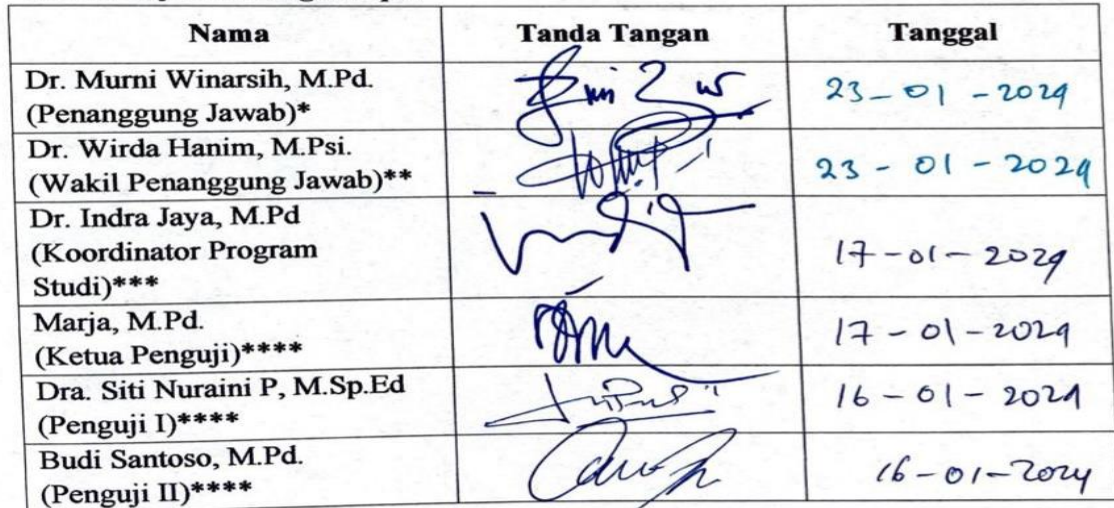 Nama Tanda Tangan Tanggal
Dr. Murni Winarsih, M.Pd.
(Penanggung Jawab)* 23-01-2024
Dr. Wirda Hanim, M.Psi.
(Wakil Penanggung Jawab)** 23-01-2024
Dr. Indra Jaya, M.Pd
(Koordinator Program
Studi)*** 17-01-2024
Marja, M.Pd.
(Ketua Penguji)**** 17-01-2024
Dra. Siti Nuraini P, M.Sp.Ed
(Penguji I)**** 16-01-2024
Budi Santoso, M.Pd.
(Penguji II)**** 16-01-2024